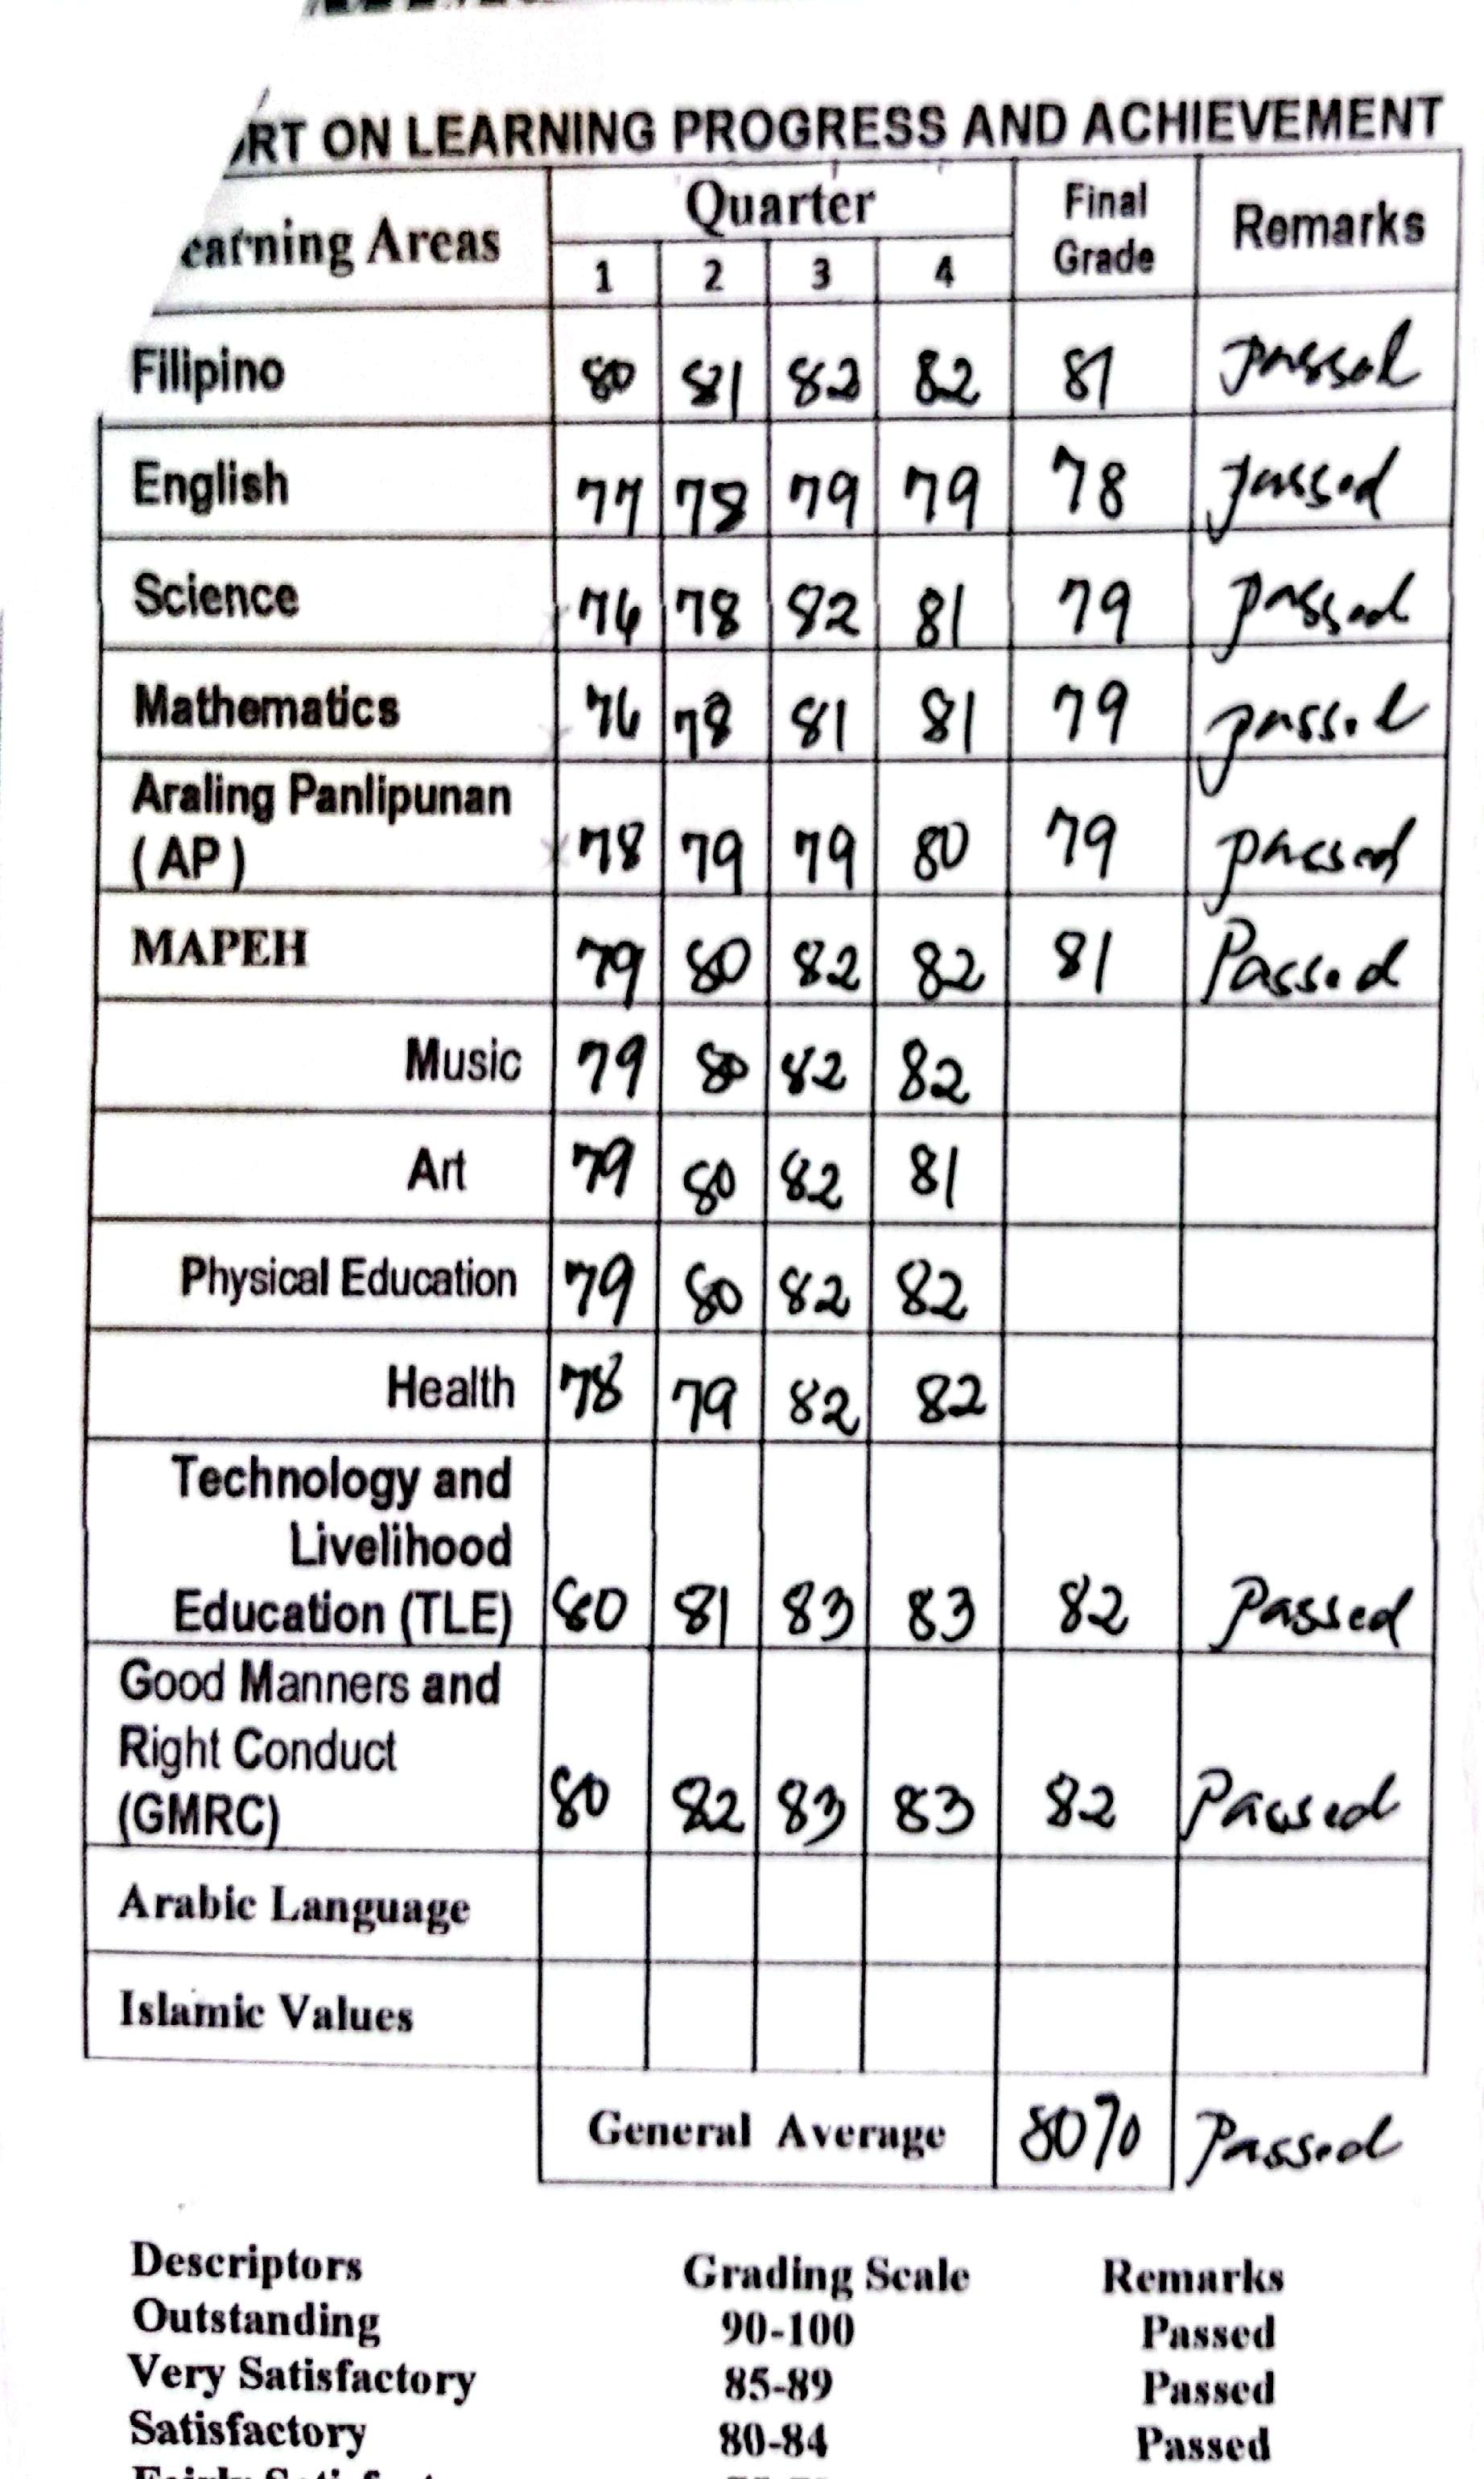 ORT ON LEARNING PROGRESS AND ACHIEVEMENT
earning Areas Quarter Final Grade Remarks
1 2 3 4
Filipino 80 81 82 82 81 passed
English 77 78 79 79 78 passed
Science 76 78 82 81 79 passed
Mathematics 76 78 81 81 79 passed
Araling Panlipunan
(AP) 78 79 79 80 79 passed
MAPEH 79 80 82 82 81 Passed
Music 79 80 82 82
Art 79 80 82 81
Physical Education 79 80 82 82
Health 78 79 82 82
Technology and
Livelihood
Education (TLE) 80 81 83 83 82 Passed
Good Manners and
Right Conduct
(GMRC) 80 82 83 83 82 Passed
Arabic Language
Islamic Values
General Average 80% Passed
Descriptors Grading Scale Remarks
Outstanding 90-100 Passed
Very Satisfactory 85-89 Passed
Satisfactory 80-84 Passed